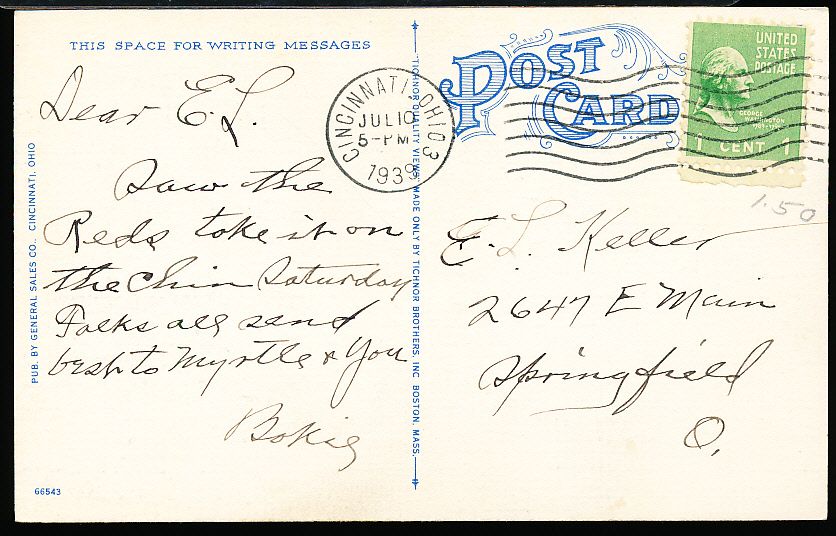 THIS SPACE FOR WRITING MESSAGES
Dear E.L.
Saw the
Reds take it on
the chin Saturday
Folks all send
best to Myrtle & You
PUB. BY GENERAL SALES CO., CINCINNATI, OHIO
66543
"TICHNOR QUALITY VIEWS," MADE ONLY BY TICHNOR BROTHERS, INC. BOSTON, MASS.
POST
CARD
CINCINNATI, OHIO 3
JUL 10
5-PM
1939
UNITED
STATES
POSTAGE
GEORGE
WASHINGTON
1789-1797
1 CENT 1
1.50
E. L. Keller
2647 E Main
Springfield
O.